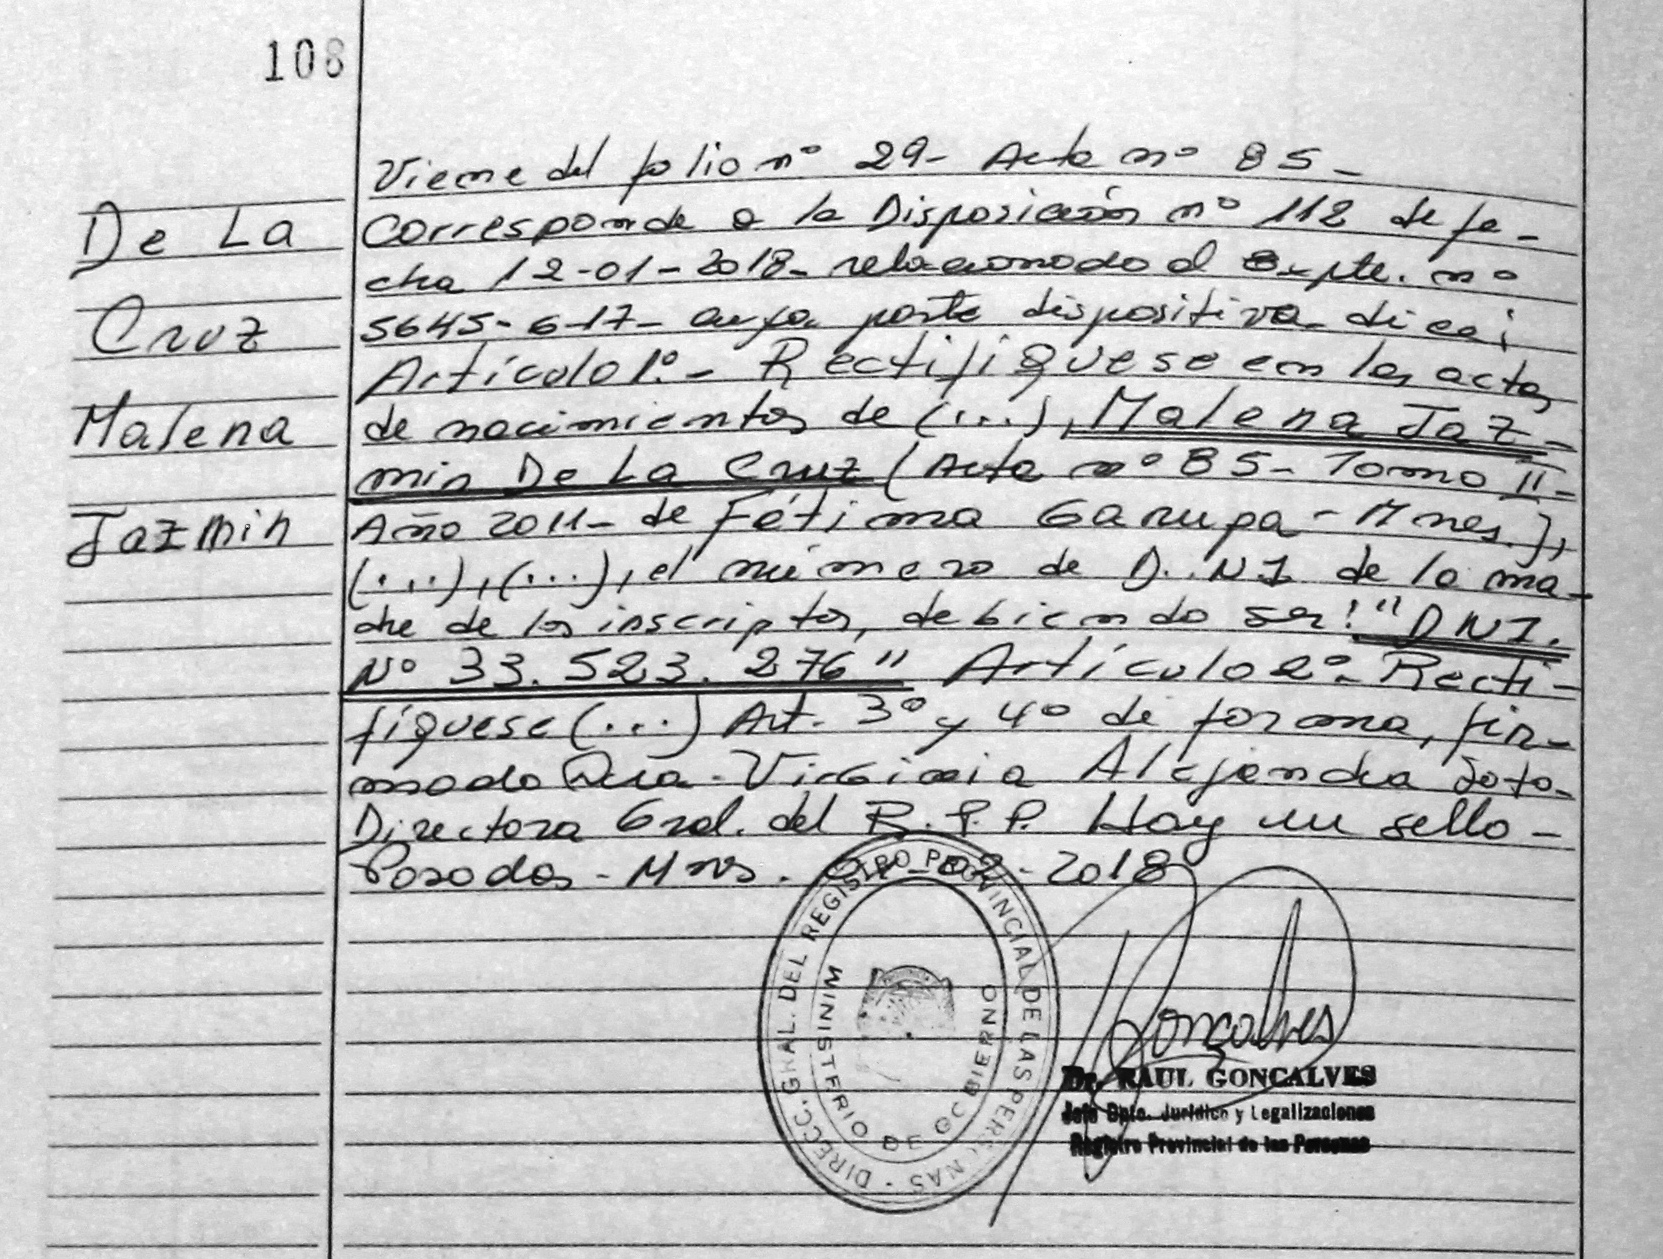 108
De La
Cruz
Malena
Jazmin
Viene del folio nº 29- Acta nº 85-
Corresponde a la Disposición nº 112 de fe-
cha 12-01-2018- relacionado al Expte. nº
5645-6-17- cuya parte dispositiva dice:
Artículo 1º.- Rectifíquese en las actas
de nacimientos de (...), Malena Jaz-
min De La Cruz (Acta nº 85- Tomo II-
Año 2011- de Fátima Garupa-Mnes.),
(...),(...), el número de D.NI de la ma-
dre de los inscriptos, debiendo ser: "DNI.
Nº 33.523.276" Artículo 2º- Recti-
fíquese (...) Art. 3º y 4º de forma, fir-
mado Dra. Virginia Alejandra Soto-
Directora Gral. del R.P.P. Hay un sello-
Posadas - Mns. 02-2018
DIRECC. GRAL. DEL REGISTRO PROVINCIAL DE LAS PERSONAS
MINISTERIO DE GOBIERNO
Goncalves
Dr. RAUL GONCALVES
Jefe Dpto. Jurídico y Legalizaciones
Registro Provincial de las Personas